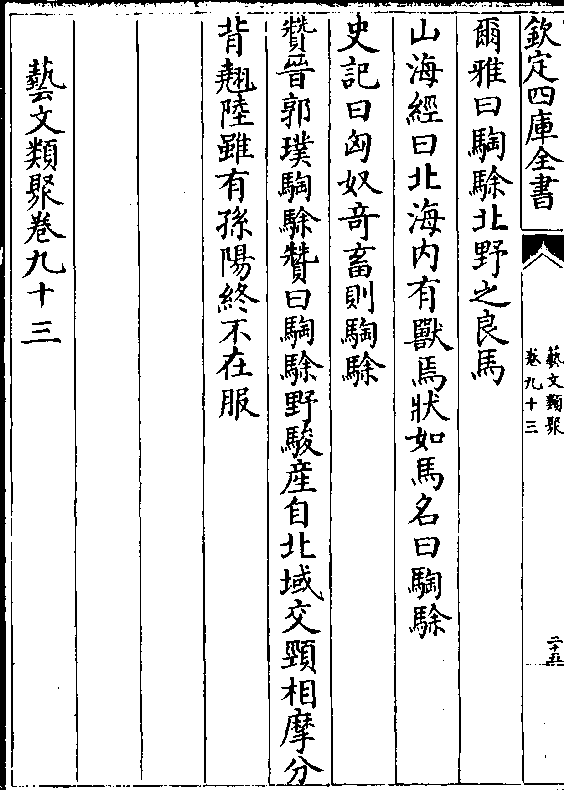 欽定四庫全書
藝文類聚
卷九十三
二十五
爾雅曰騊駼北野之良馬
山海經曰北海内有獸焉狀如馬名曰騊駼
史記曰匈奴竒畜則騊駼
贊晉郭璞騊駼贊曰騊駼野駿産自北域交頸相摩分
背翹陸雖有孫陽終不在服
藝文類聚卷九十三